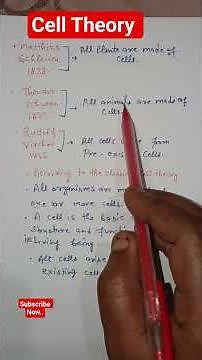 Cell Theory
Matthias
Schleiden
1838
→ All Plants are made of
Cells.
Theodor
Schwann
1839
→ All animals are made of
Cells
Rudolf
Virchow
1855
→ All cells form
Pre-existing Cells.
According to the classical cell theory
All organisms are made
one or more cells.
A cell is the basic
structure and func
living being
All cells arise
existing cell
Subscribe
Now..